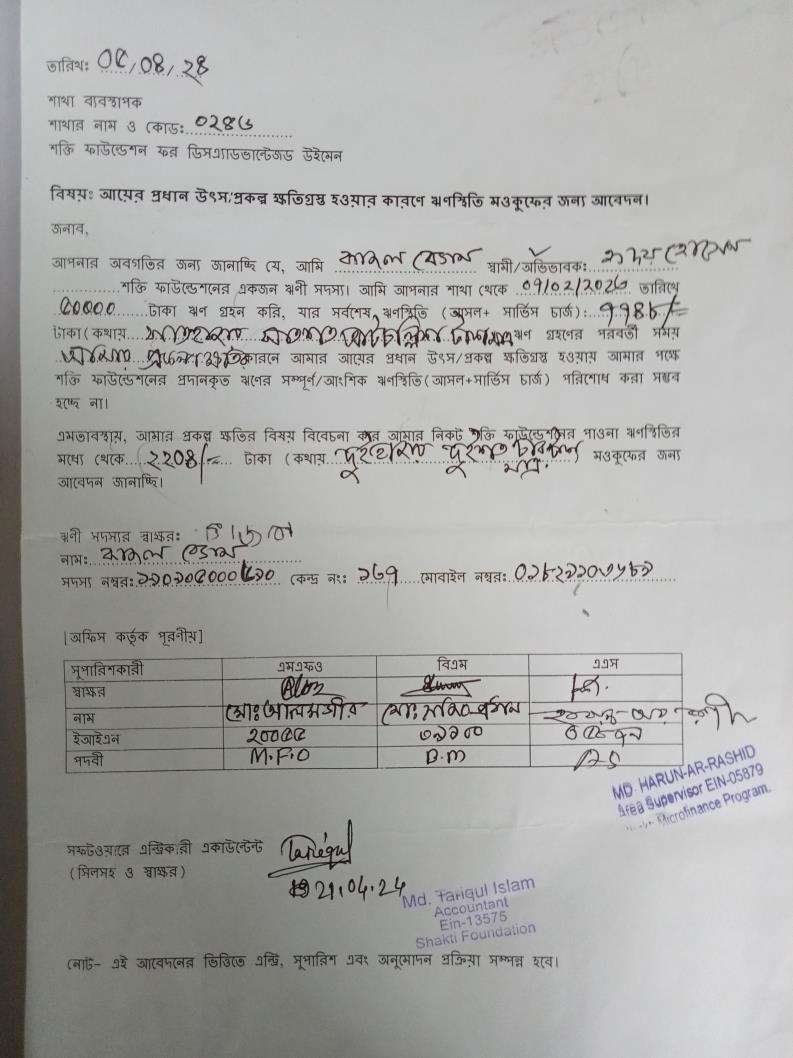 তারিখ: ০৫/০৪/২৪
শাখা ব্যবস্থাপক
শাখার নাম ও কোড: ০২৪৬
শক্তি ফাউন্ডেশন ফর ডিসএ্যাডভান্টেজড উইমেন
বিষয়: আয়ের প্রধান উৎস/প্রকল্প ক্ষতিগ্রস্থ হওয়ার কারণে ঋণস্থিতি মওকুফের জন্য আবেদন।
জনাব,
আপনার অবগতির জন্য জানাচ্ছি যে, আমি বেগম স্বামী/অভিভাবক:
শক্তি ফাউন্ডেশনের একজন ঋনী সদস্য। আমি আপনার শাখা থেকে তারিখে
৫০০০০ টাকা ঋণ গ্রহন করি, যার সর্বশেষ ঋণস্থিতি (আসল+ সার্ভিস চার্জ): ৭৭৪৮/=
টাকা (কথায় সাতহাজার সাতশত আটচল্লিশ টাকা ঋণ গ্রহণের পরবর্তী সময়
কারনে আমার আয়ের প্রধান উৎস/প্রকল্প ক্ষতিগ্রস্থ হওয়ায় আমার পক্ষে
শক্তি ফাউন্ডেশনের প্রদানকৃত ঋণের সম্পূর্ণ/আংশিক ঋণস্থিতি (আসল+সার্ভিস চার্জ) পরিশোধ করা সম্ভব
হচ্ছে না।
এমতাবস্থায়, আমার প্রকল্প ক্ষতির বিষয় বিবেচনা করে আমার নিকট শক্তি ফাউন্ডেশনের পাওনা ঋণস্থিতির
মধ্যে থেকে ২২০৪/= টাকা (কথায় দুইহাজার দুইশত চার টাকা মাত্র) মওকুফের জন্য
আবেদন জানাচ্ছি।
ঋনী সদস্যর স্বাক্ষর:
নাম: বেগম
সদস্য নম্বর: কেন্দ্র নং: ১৬৭ মোবাইল নম্বর:
[অফিস কর্তৃক পূরনীয়]
সুপারিশকারী এমএফও বিএম এএস
স্বাক্ষর
নাম মোঃ আলমগীর মোঃ
ইআইএন ২০০৫৫ ৩১১০০
পদবী M.F.O B.M AS
MD. HARUN-AR-RASHID
Area Supervisor EIN-05879
Microfinance Program.
সফটওয়ারে এন্ট্রিকারী একাউন্টেন্ট Tariqul
(সিলসহ ও স্বাক্ষর)
21.04.24
Md. Tariqul Islam
Accountant
Ein-13575
Shakti Foundation
নোট- এই আবেদনের ভিত্তিতে এন্ট্রি, সুপারিশ এবং অনুমোদন প্রক্রিয়া সম্পন্ন হবে।